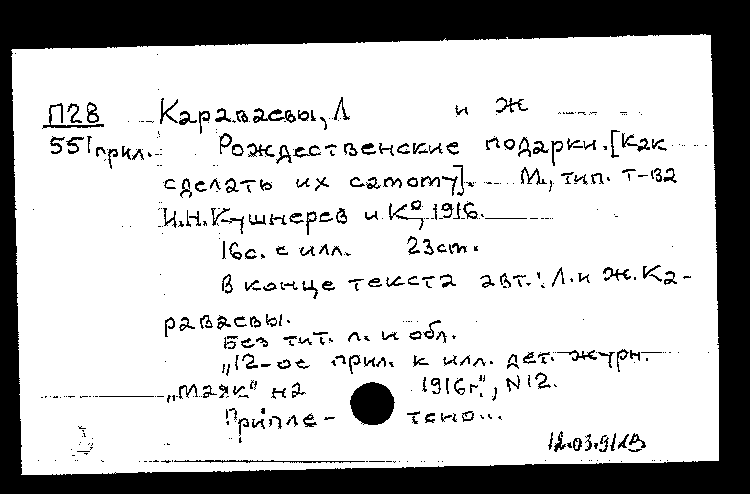 П28 Караваевы, Л и Ж
551 прил. Рождественские подарки. [Как
сделать их самому]. М., тип. т-ва
И.Н. Кушнерев и Ко, 1916.
16с. с илл. 23см.
В конце текста авт.: Л. и Ж. Ка-
раваевы.
Без тит. л. и обл.
„12-ое прил. к илл. дет. журн.
„Маяк“ на 1916г.“, N12.
Припле- тено...